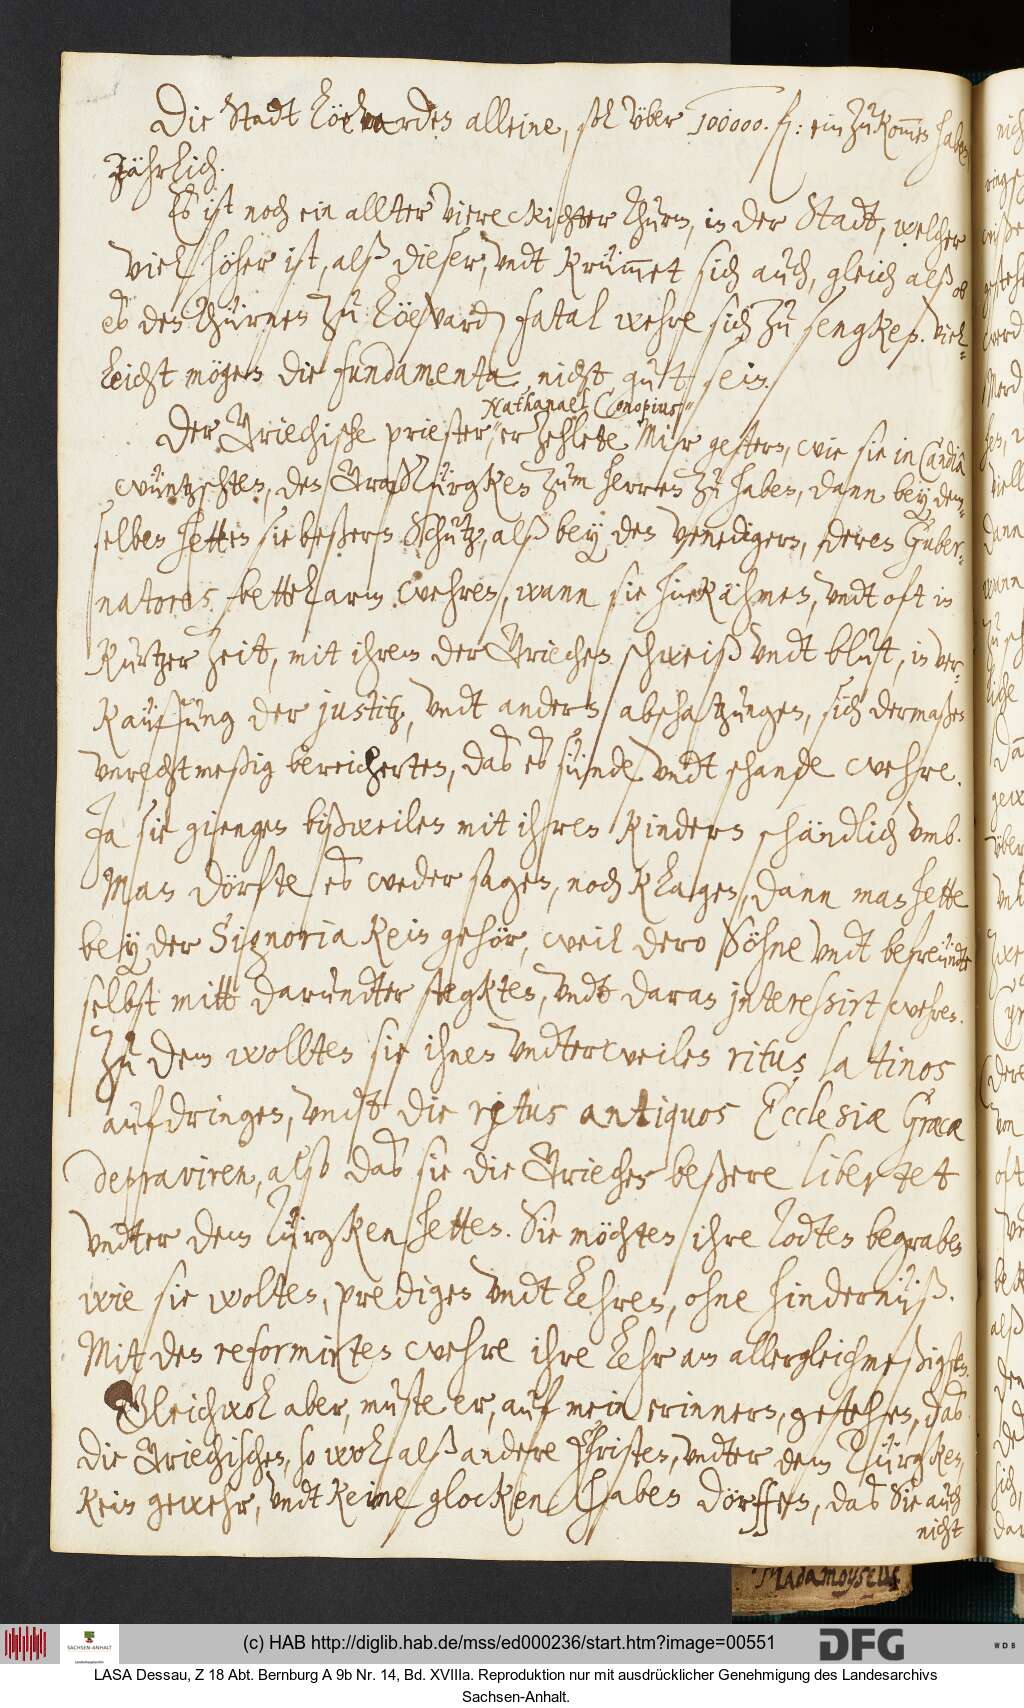 Die Stadt Löewarden alleine, sol über 100000. fl: einzukommen haben
Jährlich.
Es ist noch ein allter viereckichter Thurm, in der Stadt, welcher
viel höher ist, alß dieser, undt krümmet sich auch, gleich alß ob
es den Thürnen zu Löewarden fatal wehre sich zu sengken. Viel-
leicht mögen die fundamenta nicht gutt sein.
Nathanael Conopius
Der Griechische priester, erzehlete Mir gestern, wie sie in Candia
wüntzschten, den GroßTürgken zum herren zu haben, dann bey dem-
selben hetten sie beßern Schutz, alß bey den Venedigern, deren Guber-
natores bettelarm wehren, wann sie hinkähmen, undt oft in
Kurtzer zeit, mit ihrem der Griechen schweiß undt blut, in ver-
kauffung der justitz, undt andern abschatzungen, sich dermaßen
unrechtmeßig bereicherten, das es sünde undt schande wehre.
Ja sie giengen bißweilen mit ihren kindern schändlich umb.
Man dörfte es weder sagen, noch klagen, dann man hette
bey der Signoria kein gehör, weil dero Söhne undt befreundte
selbst mitt darundter stegkten, undt daran jnteressirt wehren.
Zu dem wollten sie ihnen undterweilen ritus latinos
aufdringen, undt die ritus antiquos Ecclesiæ Græcæ
depraviren, also das sie die Griechen beßere libertet
undter dem Türgken hetten. Sie möchten ihre Todten begraben
wie sie wolten, predigen undt Lehren, ohne hindernüß.
Mit den reformirten wehre ihre Lehr am allergleichmeßigsten.
Gleichwol aber, muste er, auf mein erinnern, gestehen, das
die Griechischen, so wol alß andere Christen, undter dem Türgken,
kein gewehr, undt keine glocken haben dörffen, das Sie auch
nicht
Madamoyselle
(c) HAB http://diglib.hab.de/mss/ed000236/start.htm?image=00551
SACHSEN-ANHALT
DFG
WDB
LASA Dessau, Z 18 Abt. Bernburg A 9b Nr. 14, Bd. XVIIIa. Reproduktion nur mit ausdrücklicher Genehmigung des Landesarchivs
Sachsen-Anhalt.